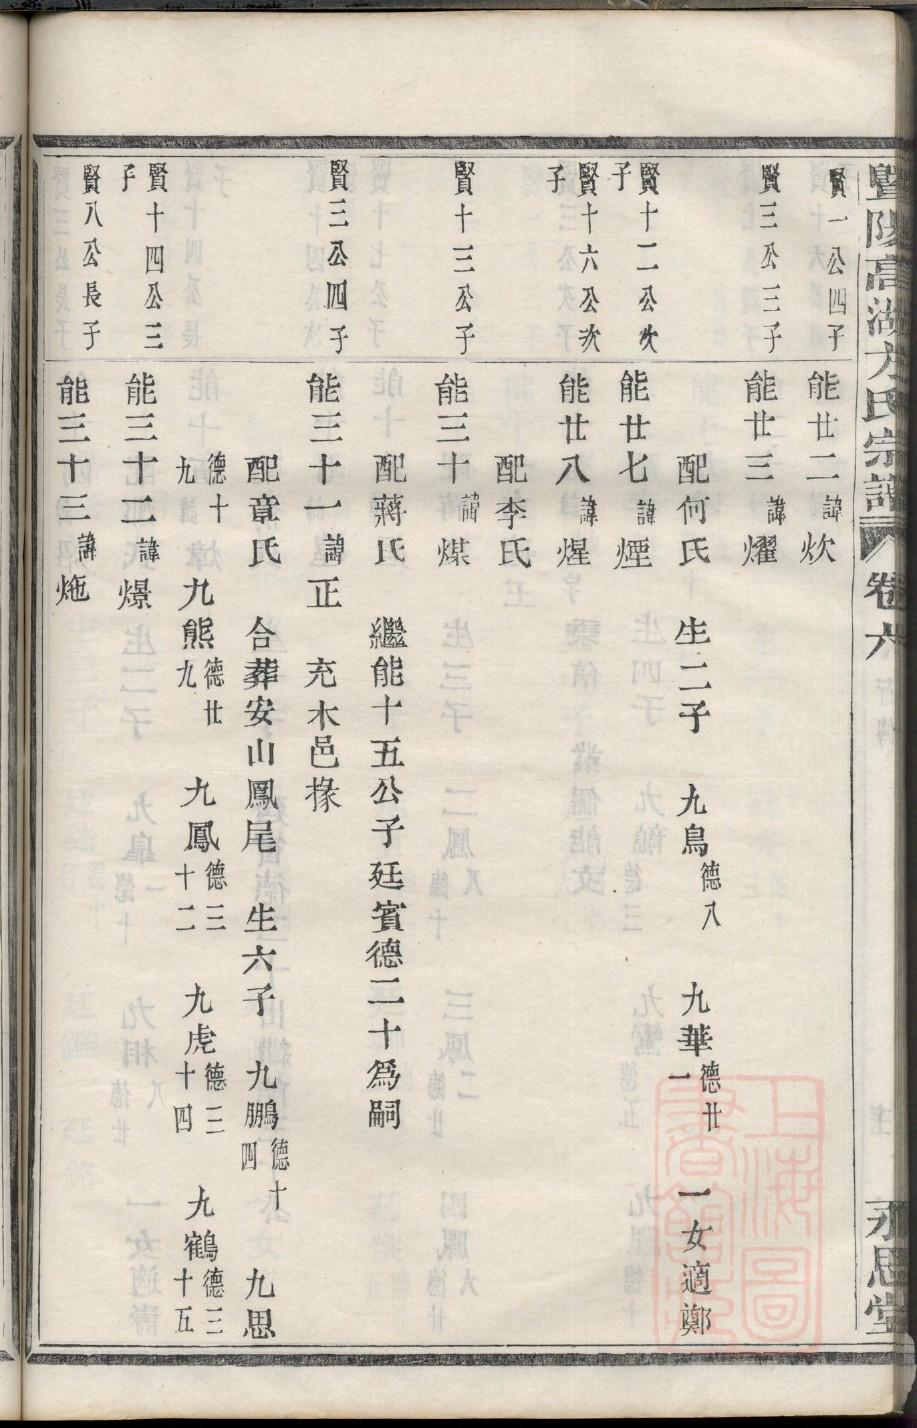 暨陽高湖方氏宗譜 卷六 永思堂
賢一公四子
能廿二諱炊
賢三公三子
能廿三諱燿
配何氏 生二子 九鳥德八 九華德廿一 一女適鄭
賢十二公次子
能廿七諱煙
賢十六公次子
能廿八諱煋
配李氏
賢十三公子
能三十諱煤
配蔣氏 繼能十五公子廷賓德二十爲嗣
賢三公四子
能三十一諱正 充木邑掾
配章氏 合葬安山鳳尾 生六子 九鵬德十四 九思
德十九 九熊德廿九 九鳳德三十二 九虎德三十四 九鶴德三十五
賢十四公三子
能三十二諱燝
賢八公長子
能三十三諱炧